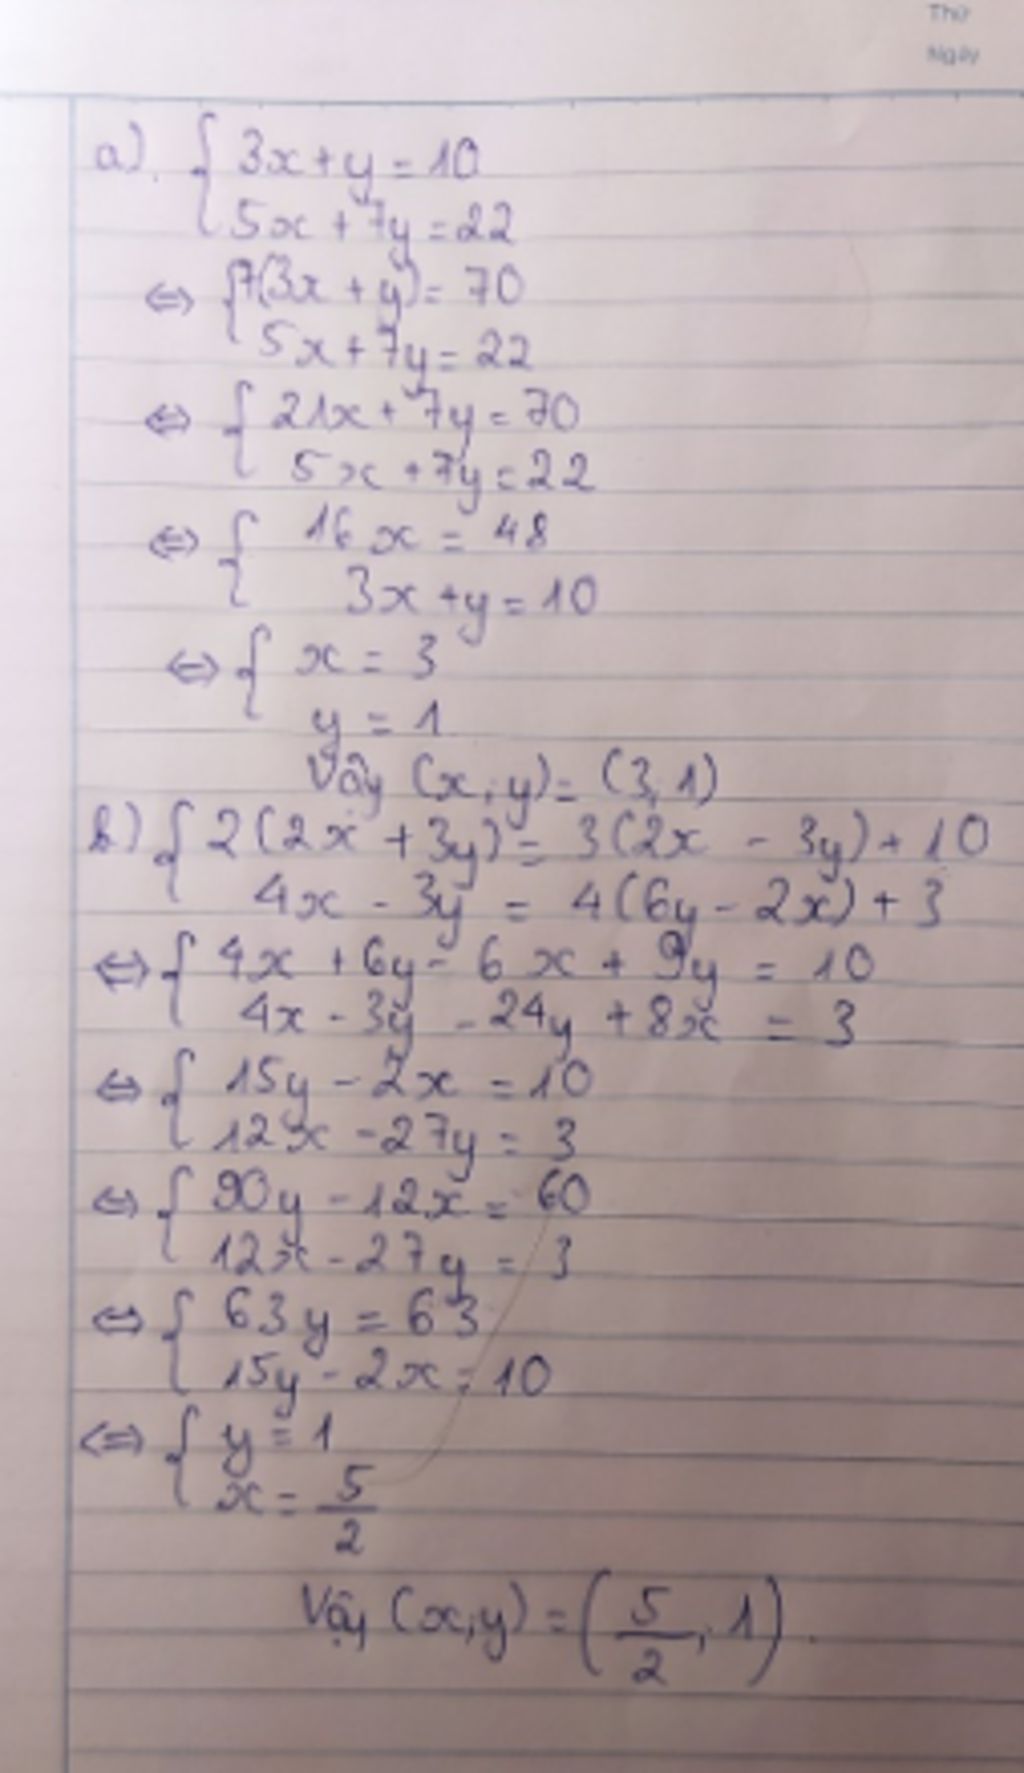 Thứ
Ngày
a). { 3x + y = 10
5x + 7y = 22
⇔ { 7(3x + y) = 70
5x + 7y = 22
⇔ { 21x + 7y = 70
5x + 7y = 22
⇔ { 16x = 48
3x + y = 10
⇔ { x = 3
y = 1
Vậy (x, y) = (3, 1)
b) { 2(2x + 3y) = 3(2x - 3y) + 10
4x - 3y = 4(6y - 2x) + 3
⇔ { 4x + 6y - 6x + 9y = 10
4x - 3y - 24y + 8x = 3
⇔ { 15y - 2x = 10
12x - 27y = 3
⇔ { 90y - 12x = 60
12x - 27y = 3
⇔ { 63y = 63
15y - 2x = 10
⇔ { y = 1
x = 5/2
Vậy (x, y) = (5/2, 1).